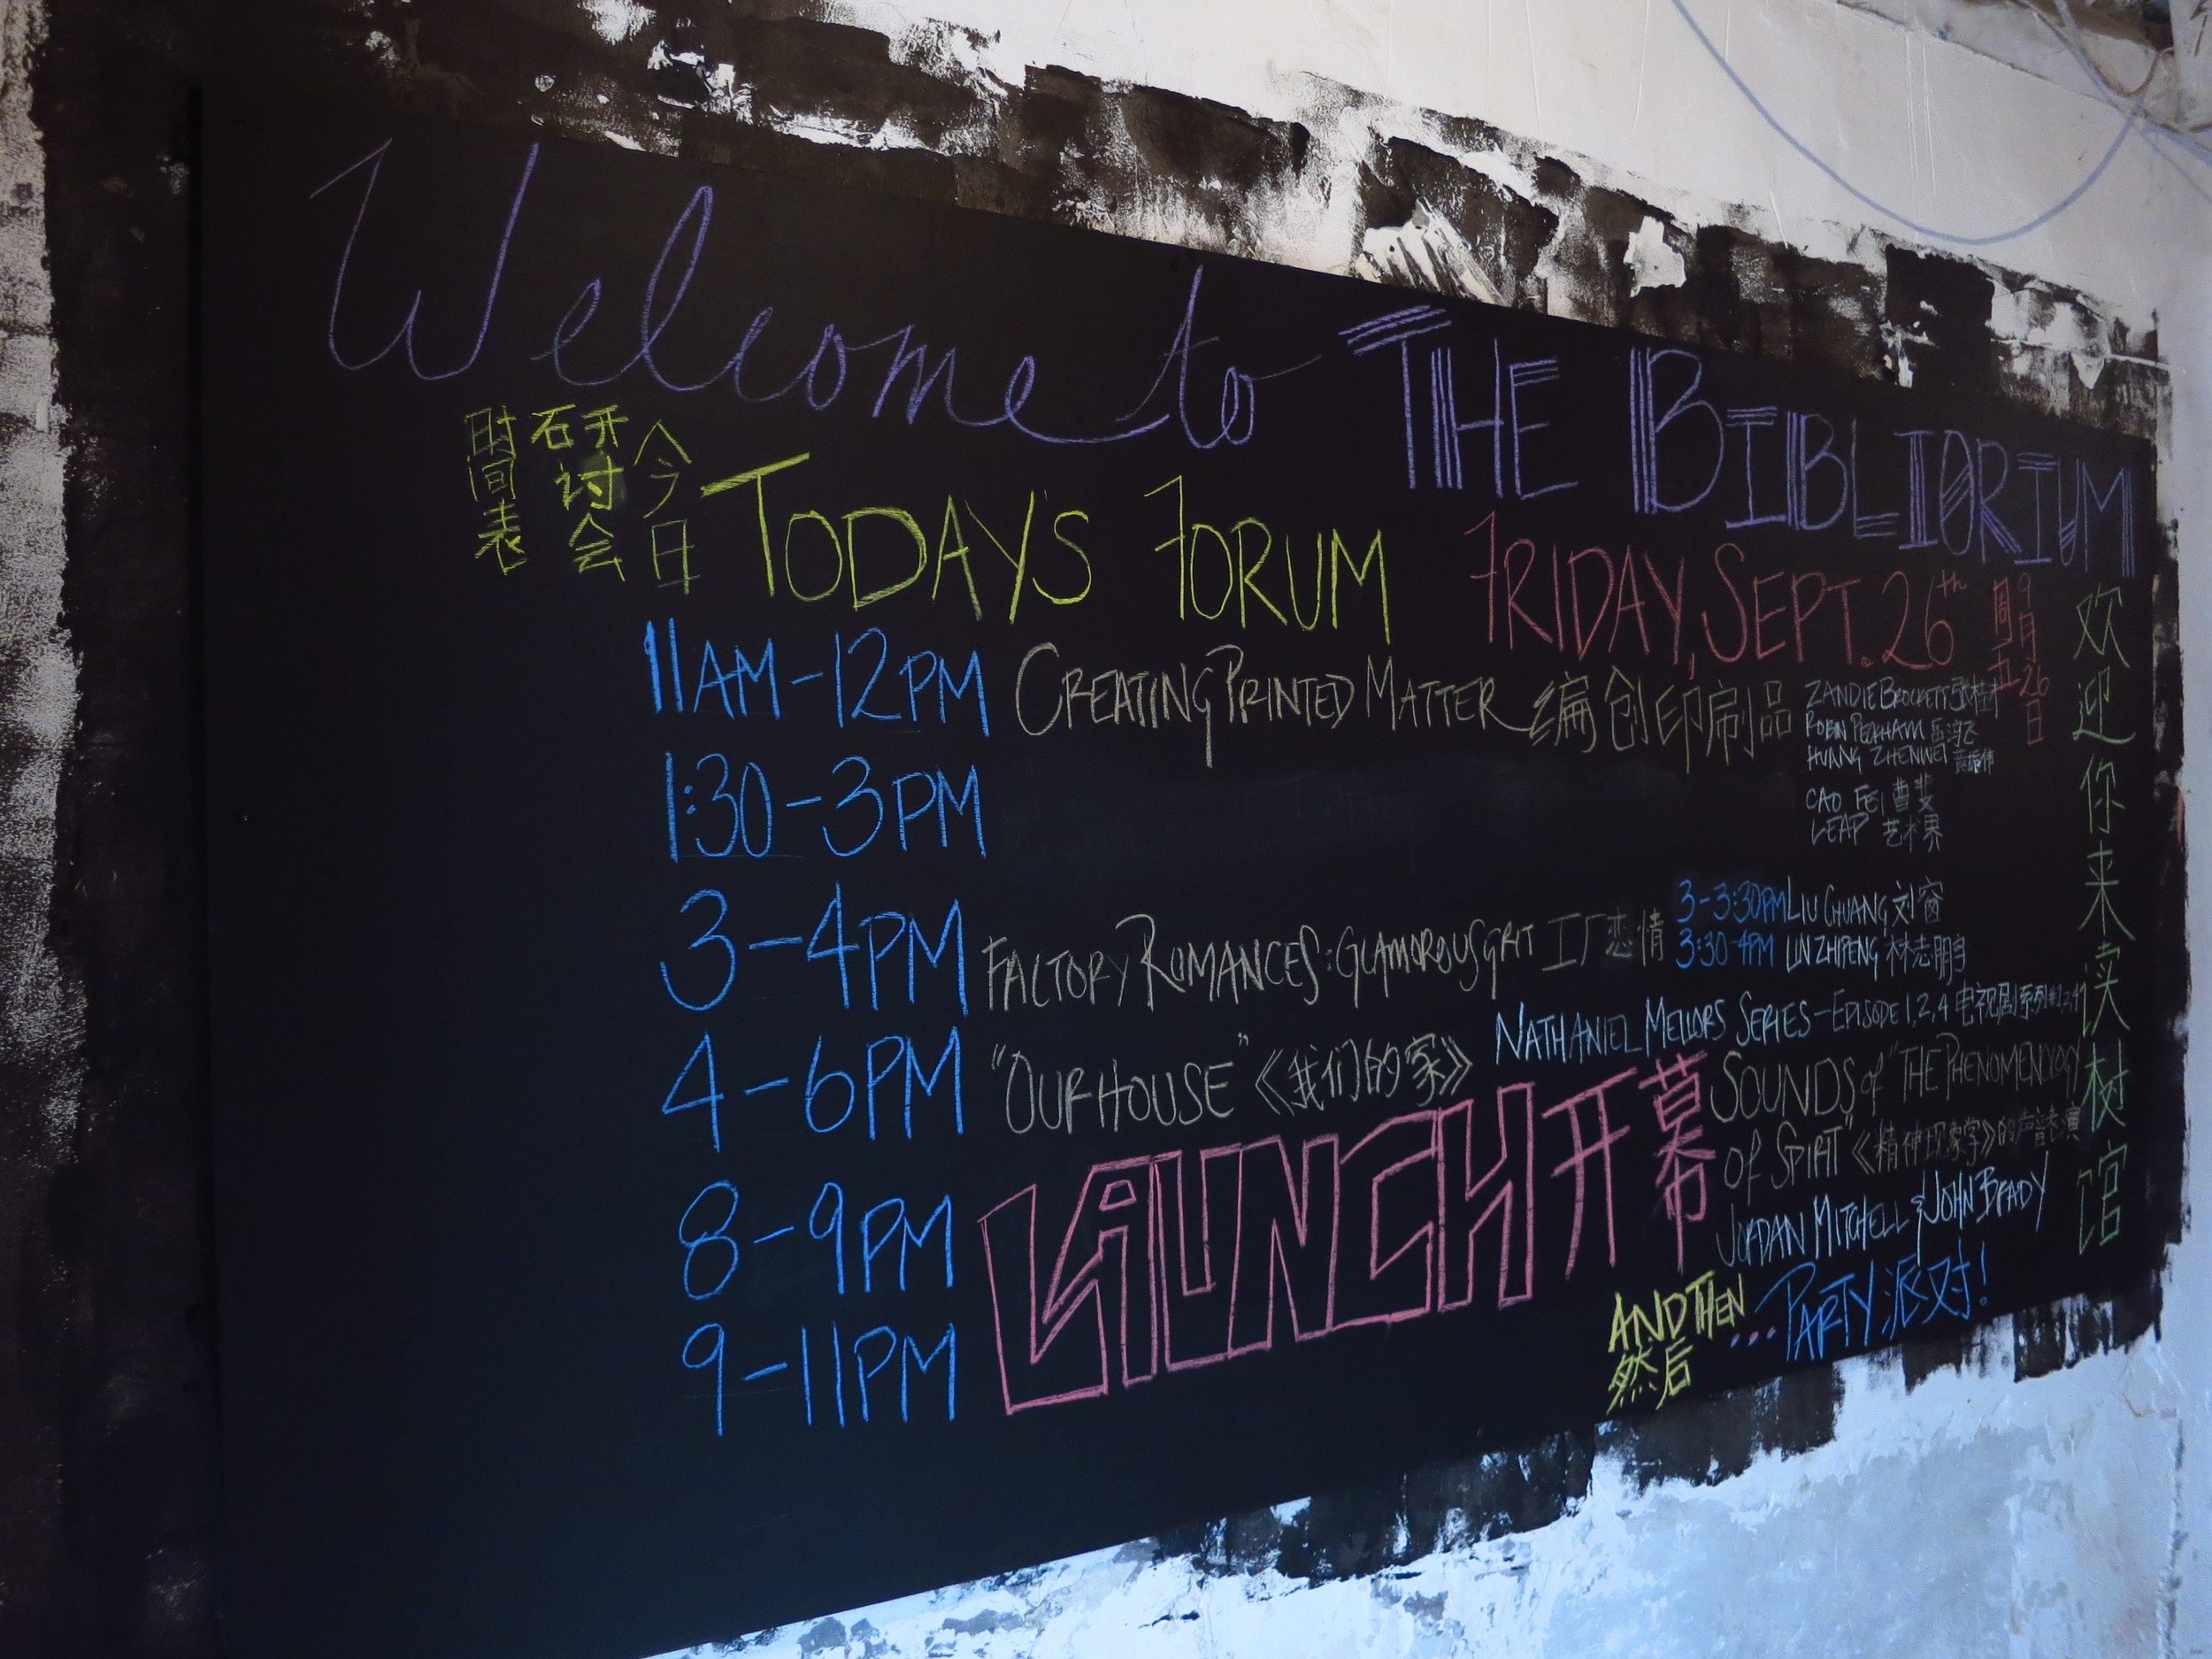 Welcome to THE BIBLIORIUM
今日
研讨会
时间表
TODAY'S FORUM
FRIDAY, SEPT. 26th
9月26日
周五
欢迎你来读树馆
11AM-12PM CREATING PRINTED MATTER 编创印刷品
ZANDIE BROCKETT 张桂
ROBIN PECKHAM 岳鸿飞
HUANG ZHENWEI 黄振伟
1:30-3PM
CAO FEI 曹斐
LEAP 艺术界
3-4PM FACTORY ROMANCES: GLAMOROUS GRIT 工厂恋情
3-3:30PM LIU CHUANG 刘窗
3:30-4PM LIN ZHIPENG 林志鹏
4-6PM "OUR HOUSE" 《我们的家》
NATHANIEL MELLORS SERIES-EPISODE 1,2,4 电视剧系列#1,2,4
8-9PM
9-11PM
LAUNCH 开幕
SOUNDS of "THE PHENOMENOLOGY
of SPIRIT" 《精神现象学》的声音表演
JORDAN MITCHELL & JOHN BRADY
AND THEN
然后
... PARTY 派对!